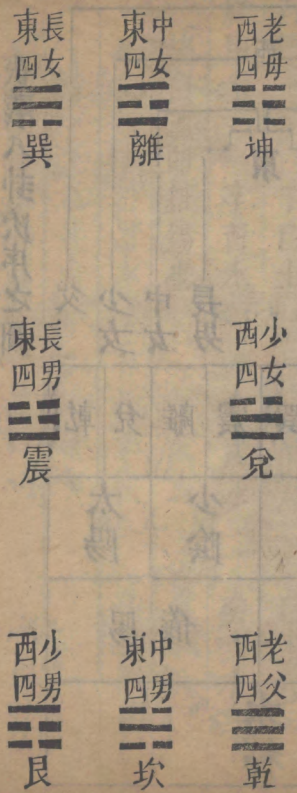 老母
西四
坤
中女
東四
離
長女
東四
巽
少女
西四
兌
長男
東四
震
老父
西四
乾
中男
東四
坎
少男
西四
艮